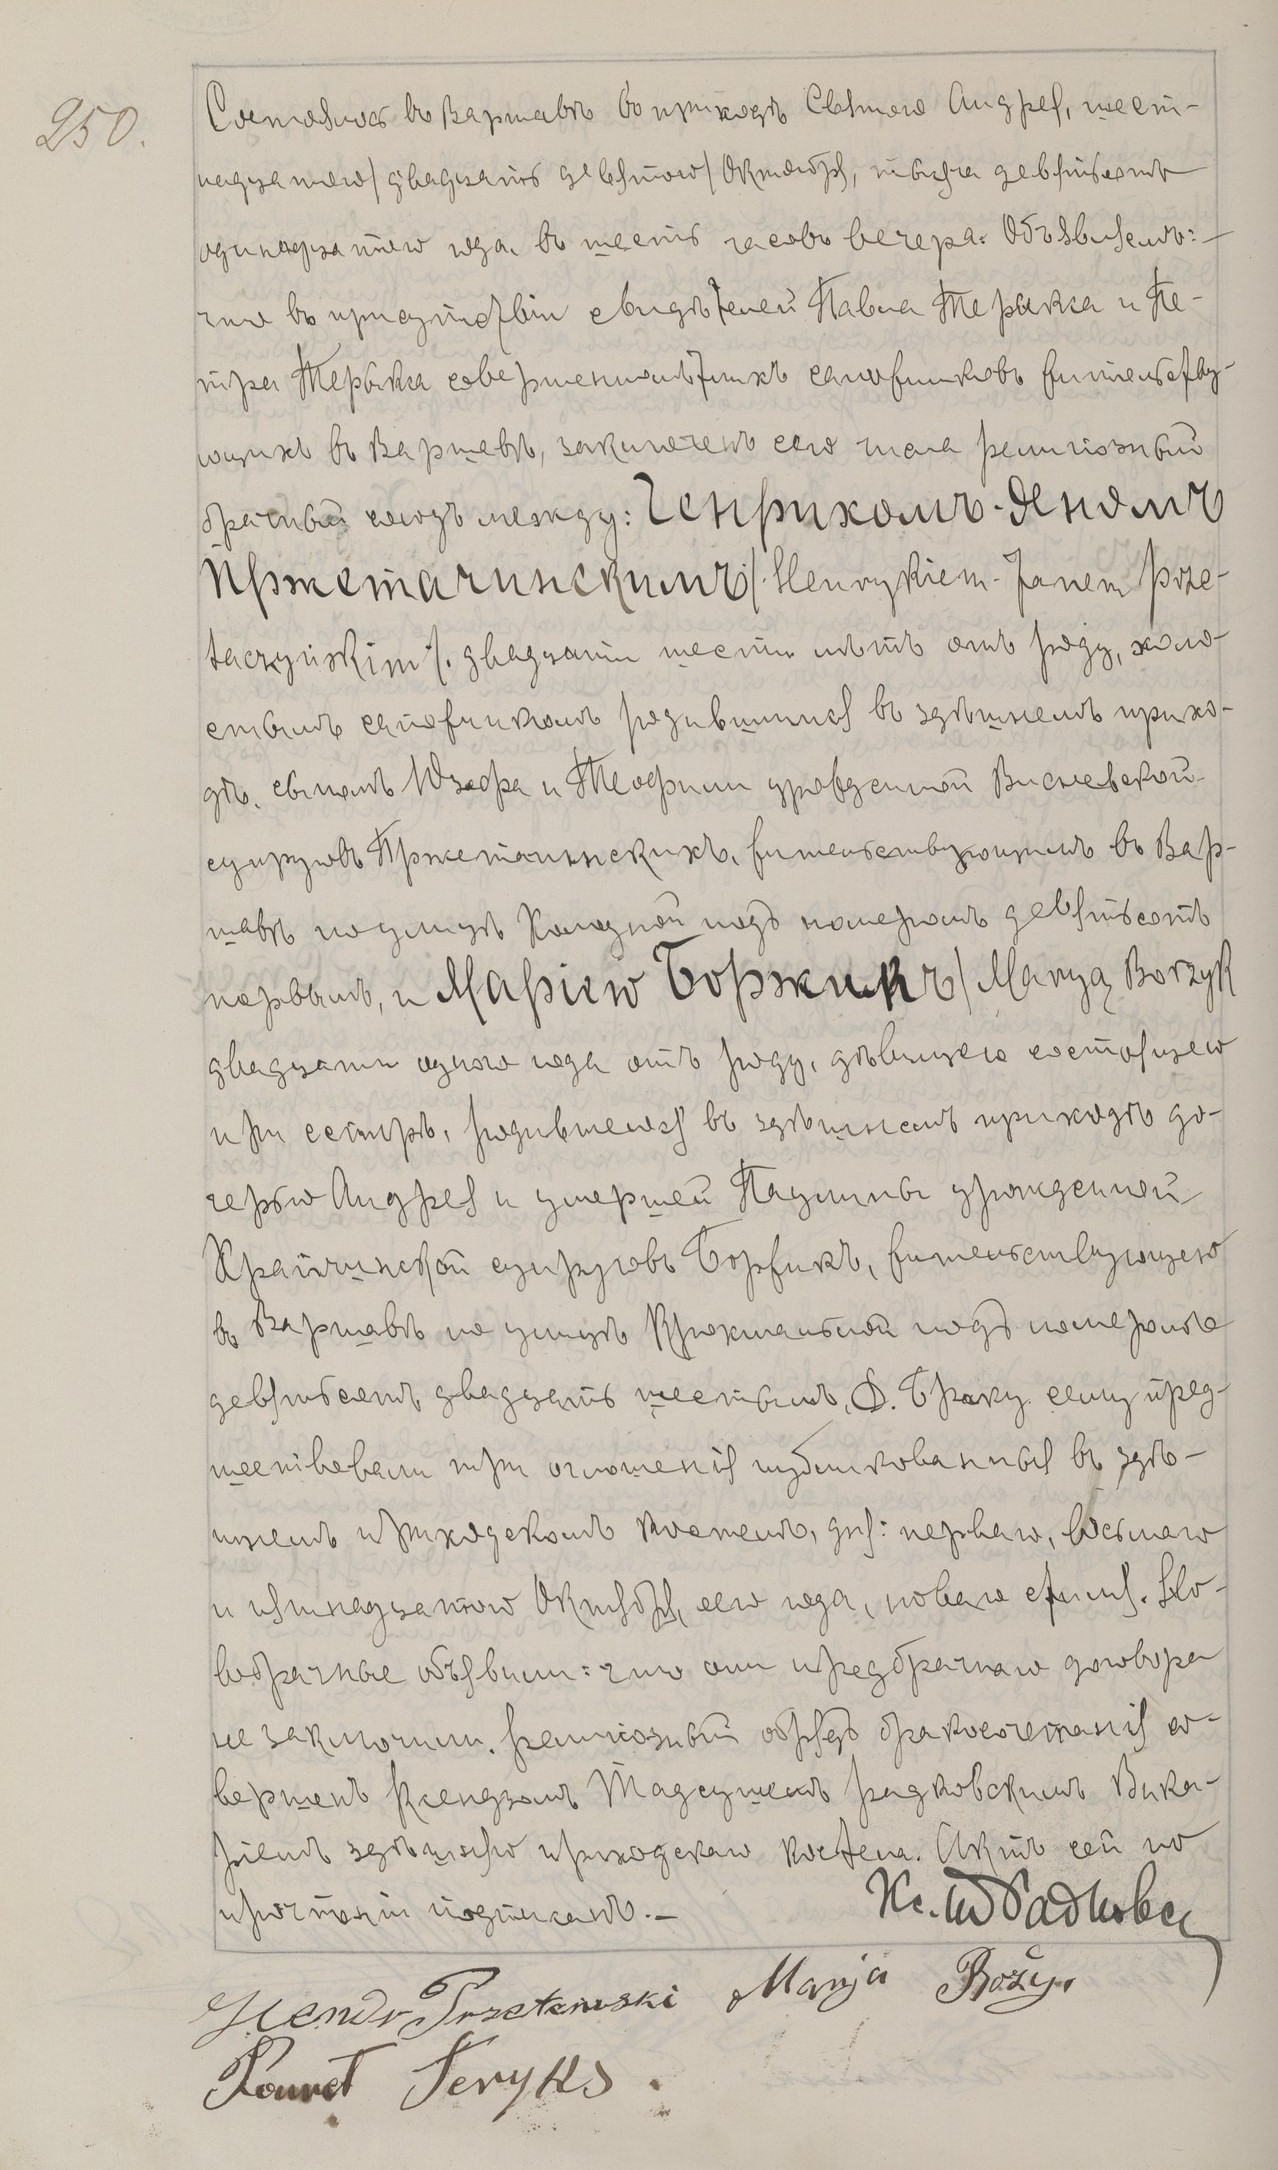 250.
Состоялось въ Варшавѣ въ приходѣ Святаго Андрея, шест-
надцатаго/двадцать девятаго/Октября, тысяча девятьсотъ
одиннадцатаго года, въ шесть часовъ вечера. Объявляемъ:-
что въ присутствіи свидѣтелей Павла Терыкса и Пе-
тра Терыкса совершеннолѣтнихъ сапожниковъ жительству-
ющихъ въ Варшавѣ, заключенъ сего числа религіозный
брачный союзъ между: Генрихомъ-Яномъ
Пржетачинскимъ/. Henrykiem-Janem Prze-
taczyńskim/. двадцати шести лѣтъ отъ роду, холо-
стымъ сапожникомъ родившимся въ здѣшнемъ прихо-
дѣ, сыномъ Юзефа и Теофили урожденной Висневской
супруговъ Пржетачинскихъ, жительствующимъ въ Вар-
шавѣ по улицѣ Холодной подъ номеромъ девятьсотъ
первымъ, и Маріею Боржикъ/Maryą Borzyk
двадцати одного года отъ роду, дѣвицею состоящею
при сестрѣ, родившеюся въ здѣшнемъ приходѣ до-
черью Андрея и умершей Паулины урожденной
Крайчинской супруговъ Боржикъ, жительствующею
въ Варшавѣ по улицѣ Крохмальной подъ номеромъ
девятьсотъ двадцать шестымъ, Д. Браку сему пред-
шествовали три оглашенія публикованныя въ здѣ-
шнемъ приходскомъ костелѣ, дня: перваго, восьмаго
и пятнадцатаго Октября, сего года, новаго стиля. Но-
вобрачные объявили: что они предбрачнаго договора
не заключили. Религіозный обрядъ бракосочетанія со-
вершенъ Ксендзомъ Тадеушемъ Радковскимъ Вика-
ріемъ здѣшняго приходскаго костела. Актъ сей по
прочтеніи подписанъ.-
Кс. Радковск
Marja